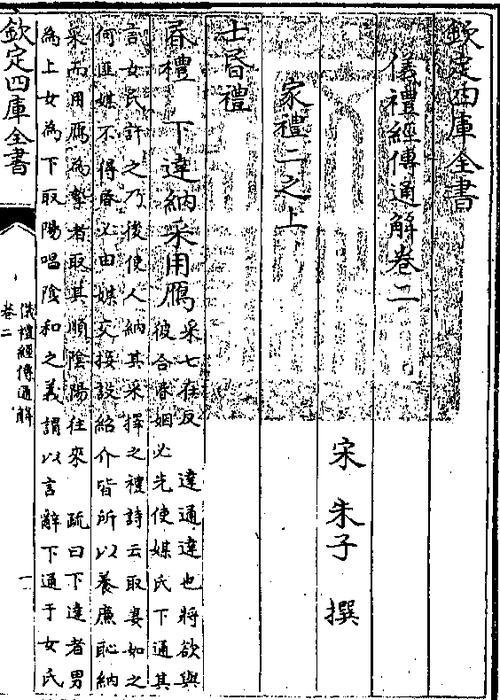 欽定四庫全書
儀禮經傳通解卷二
宋 朱子 撰
家禮二之上
士昏禮
昏禮 下達納采用鴈
采七在反 達通達也將欲與
彼合昏姻必先使媒氏下通其
言女氏許之乃後使人納其采擇之禮詩云取妻如之
何匪媒不得昏必由媒交接設紹介皆所以養廉恥納
采而用鴈為摯者取其順陰陽往來 疏曰下達者男
為上女為下取陽唱陰和之義謂以言辭下通于女氏
欽定四庫全書
儀禮經傳通解
卷二
一